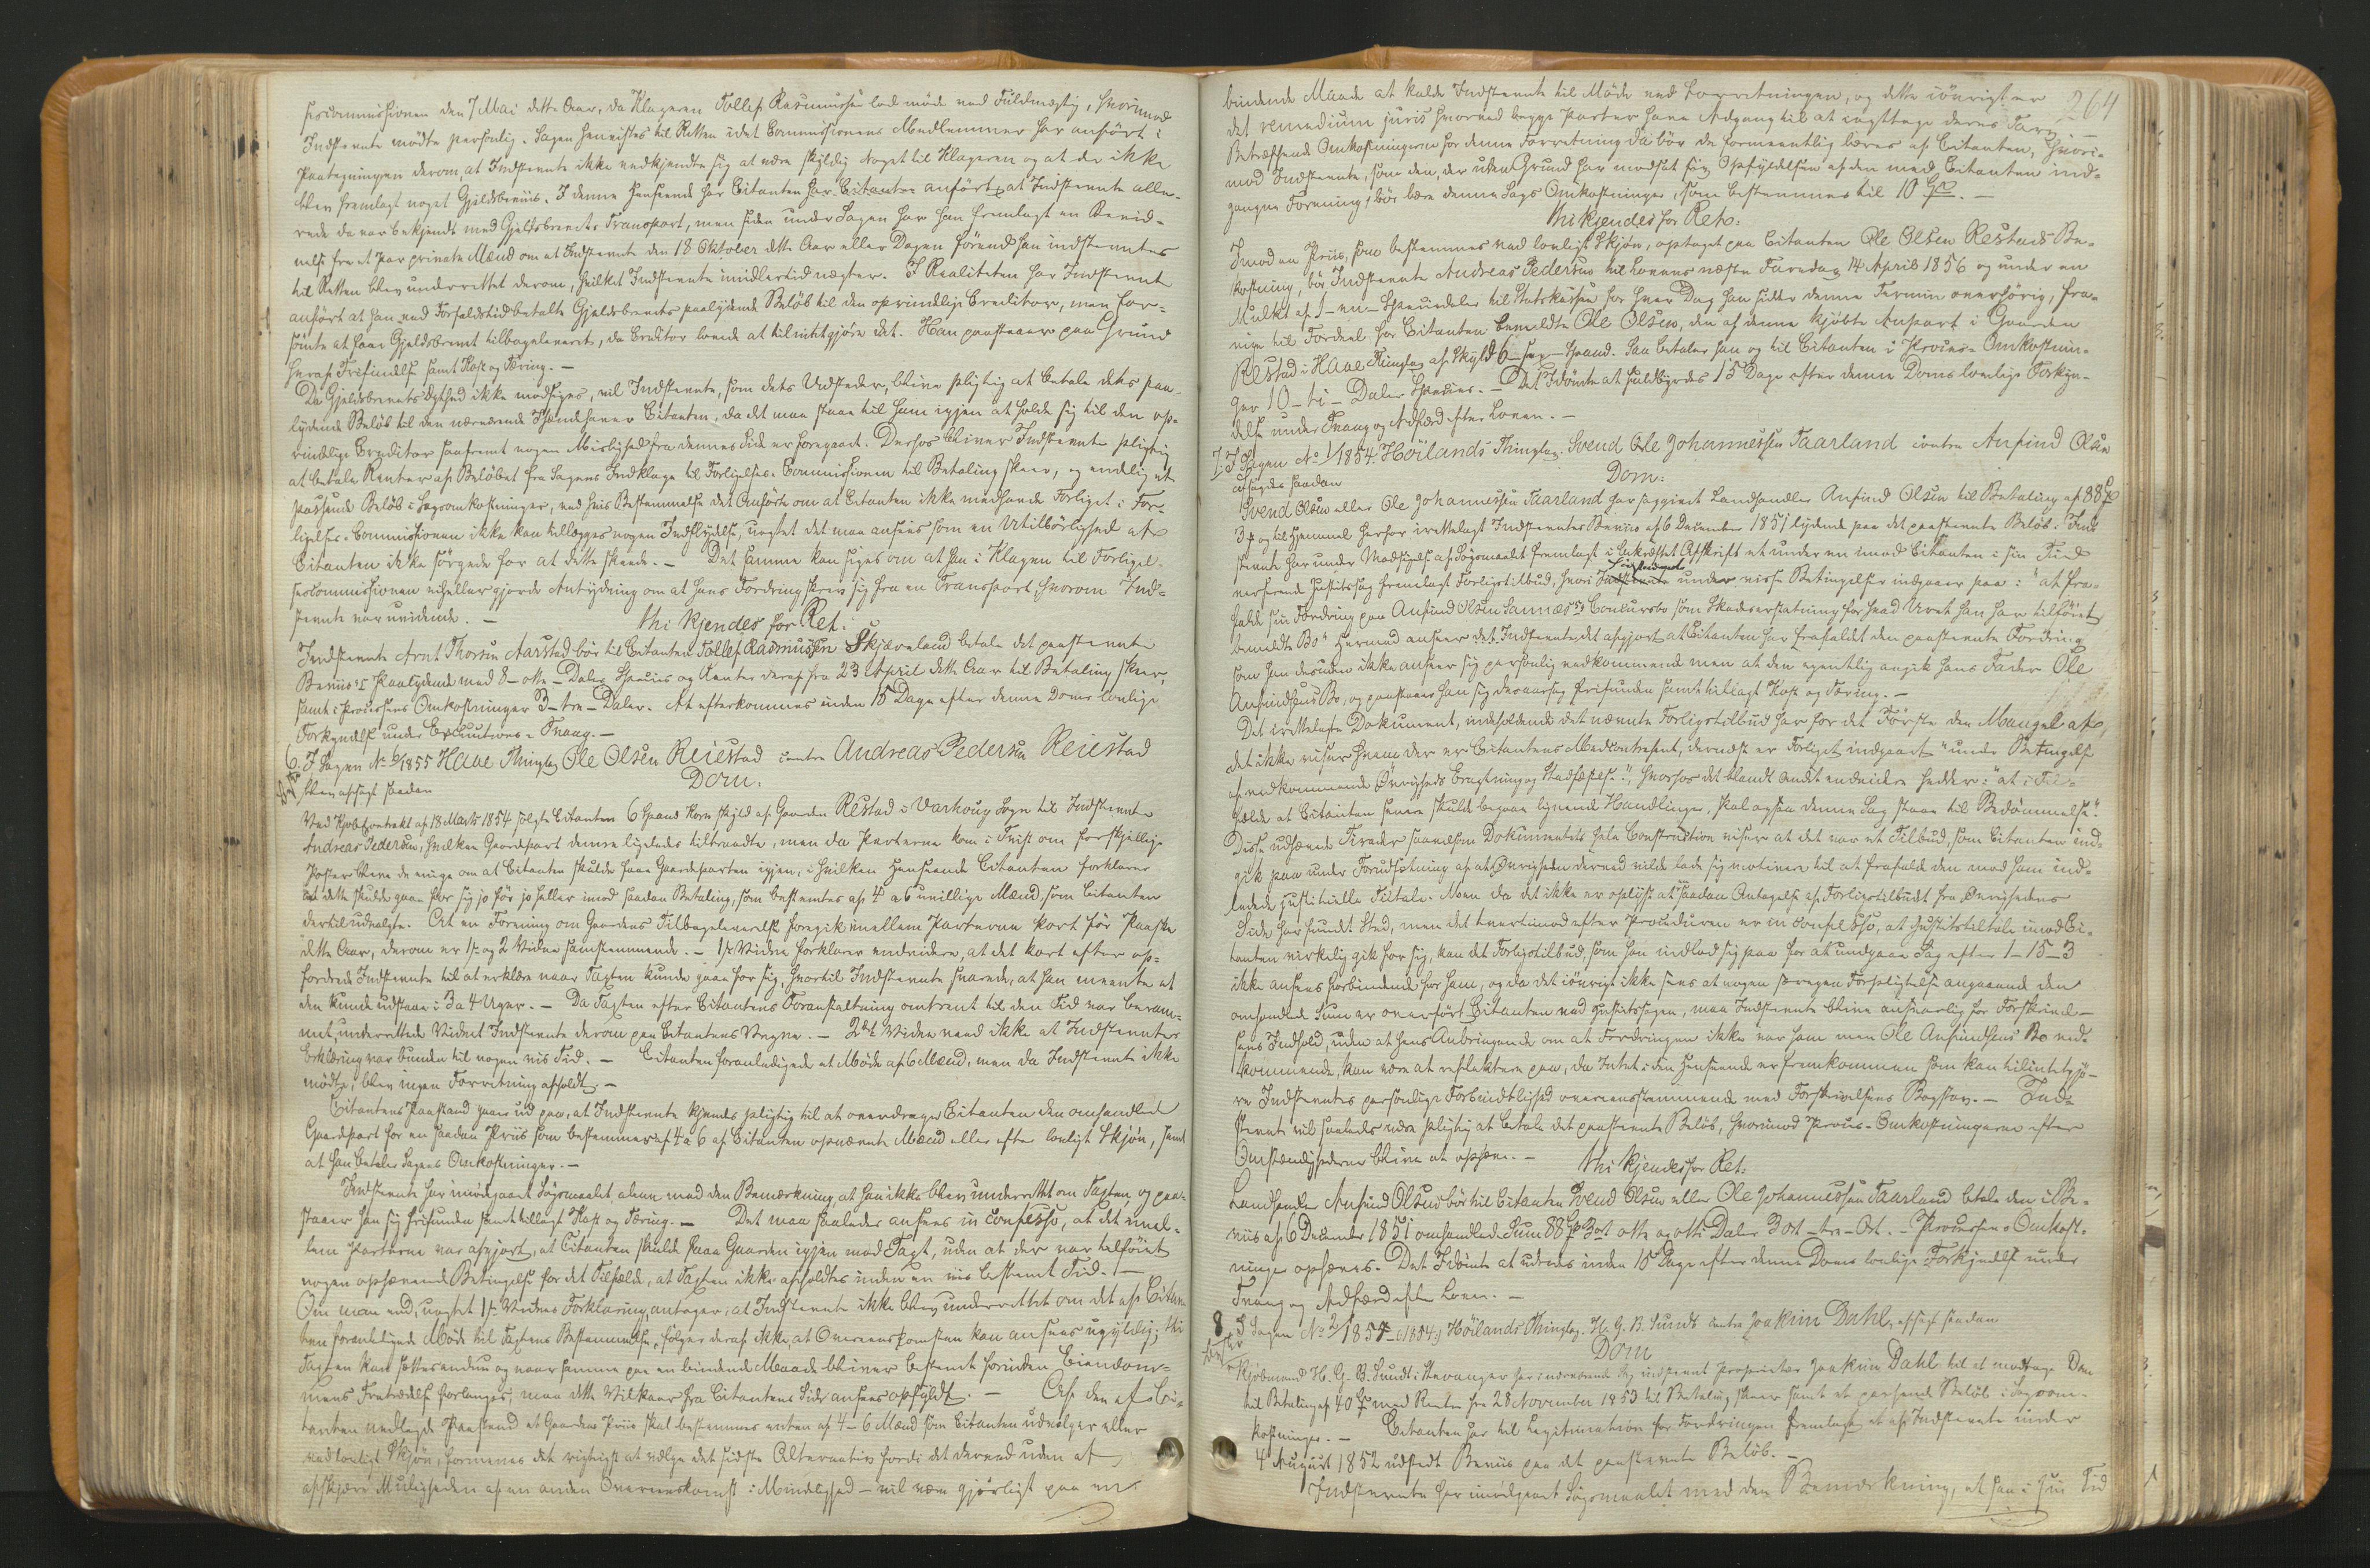 scommissionen den 7 Mai dette Aar, da Klageren Tollef Rasmussen lod møde ved Fuldmægtig, hvorimod
Indstevnte mødte personlig. Sagen henvistes til Retten idet Commissionens Medlemmer har anført i
Paategningen derom, at Indstevnte ikke vedkjendte sig at være skyldig Noget til Klageren og at der ikke
blev fremlagt noget Gjeldsbeviis. I denne Henseende har Citanten anført, at Indstevnte alle-
rede da var bekjendt med Gjeldsbrevets Transport, men siden under Sagen har han fremlagt en Bevid-
nelse fra et Par private Mænd om at Indstevnte den 18 Oktober dette Aar eller Dagen førend han indstevntes
til Retten blev underrettet derom, hvilket Indstevnte imidlertid nægter. I Realiteten har Indstevnte
anført at han ved Forfaldstid betalte Gjeldsbrevets paalydende Beløb til den oprindelige Creditor, men for-
sømte at faae Gjeldsbrevet tilbageleveret, da Creditor lovede at tilintetgjøre det. Han paastaaer paa Grund
heraf Frifindelse samt Kost og Tæring. —
Da Gjeldsbrevets Ægthed ikke modsiges, vil Indstevnte, som dets Udsteder, blive pligtig at betale dets paa-
lydende Beløb til den nærværende Ihændehaver Citanten, da det maa staae til ham igjen at holde sig til den op-
rindelige Creditor saafremt nogen Mislighed fra dennes Side er foregaaet. Derhos bliver Indstevnte pligtig
at betale Renter af Beløbet fra Sagens Indklage til Forligelses-Commissionen til Betaling skeer, og endelig et
passende Beløb i Sagsomkostninger, ved hvis Bestemmelse det Anførte om at Citanten ikke medhavde Forliget i For-
ligelses-Commissionen ikke kan tillægges nogen Indflydelse, uagtet det maa ansees som en Utilbørlighed af
Citanten ikke sørgede for at dette skeede. — Det samme kan siges om at han i Klagen til Forligel-
sescommissionen ei heller gjorde Antydning om at hans Fordring skrev sig fra en Transport hvorom Ind-
stevnte var uvidende. — Thi kjendes for Ret:
Indstevnte Arnt Thorsen Aarstad bør til Citanten Tollef Rasmussen Skjæveland betale det paastevnte
Beviis's Paalydende med 8 – otte – Daler Species og Renter deraf fra 23 April dette Aar til Betaling skeer,
samt i Processens Omkostninger 3 – tre – Daler. At efterkommes inden 15 Dage efter denne Doms lovlige
Forkyndelse under Executions-Tvang. —
6. I Sagen No 6/1855 Haae Thinglag Ole Olsen Reiestad contra Andreas Pedersen Reiestad
blev afsagt saadan Dom:
Ved Kjøbekontrakt af 18 Marts 1854 solgte Citanten 6 Spand Korn Skyld af Gaarden Restad i Varhoug Sogn til Indstevnte
Andreas Pedersen, hvilken Gaardpart denne ligeledes tiltraadte, men da Parterne kom i Tvist om forskjellige
Poster bleve de enige om at Citanten skulde faae Gaardsparten igjen, i hvilken Henseende Citanten forklarer
at dette skulde gaae for sig jo før jo heller imod saadan Betaling, som bestemtes af 4 a 6 uvillige Mænd, som Citanten
dertil udvalgte. At en Forening om Gaardens Tilbageleverelse foregik mellem Parterne kort før Paaske
dette Aar, derom er 1ste og 2 Vidne samstemmende. — 1ste Vidne forklarer endvidere, at det kort efter op-
fordrede Indstevnte til at erklære naar Taxten kunde gaae for sig, hvortil Indstevnte svarede, at han meente at
den kunde udstaae i 3 a 4 Uger. — Da Taxten efter Citantens Foranstaltning omtrent til den Tid var beram-
met, underrettede Vidnet Indstevnte derom paa Citantens Vegne. — 2det Vidne veed ikke at Indstevntes
Erklæring var bunden til nogen vis Tid. — Citanten foranledigede et Møde af 6 Mænd, men da Indstevnte ikke
mødte, blev ingen Forretning afholdt. —
Citantens Paastand gaaer ud paa, at Indstevnte kjendes pligtig til at overdrage Citanten den omhandlede
Gaardpart for en saadan Priis som bestemmes af 4 a 6 af Citanten opnævnte Mænd eller efter lovligt Skjøn, samt
at han betaler Sagens Omkostninger. —
Indstevnte har imødegaaet Søgsmaalet, alene med den Bemærkning, at han ikke blev underrettet om Taxten, og paa-
staaer han sig frifunden samt tillagt Kost og Tæring. — Det maa saaledes ansees in confesso, at det imel-
lem Parterne var afgjort, at Citanten skulde faae Gaarden igjen mod Taxt, uden at der var tilføiet
nogen ophævende Betingelse for det Tilfælde, at Taxten ikke afholdtes inden en vis bestemt Tid. —
Om man end, uagtet 1ste Vidnes Forklaring, antager, at Indstevnte ikke blev underrettet om det af Citan-
ten foranledigede Møde til Taxtens Bestemmelse, følger deraf ikke, at Overeenskomsten kan ansees ugyldig; thi
Taxten kan sættes endnu og naar samme paa en bindende Maade bliver bestemt forinden Eiendom-
mens Fratrædelse forlanges, maa dette Vilkaar fra Citantens Side ansees opfyldt. — Af den af Ci-
tanten nedlagte Paastand at Gaardens Priis skal bestemmes enten af 4 – 6 Mænd som Citanten udvælger eller
ved lovligt Skjøn, formenes det rigtigst at vælge det sidste Alternativ fordi det derved uden at
afskjære Muligheden af en anden Overeenskomst i Mindelighed – vil være gjørligt paa en
264
bindende Maade at kalde Indstevnte til Møde ved Forretningen, og dette iøvrigt er
det remedium juris hvorved begge Parter have Adgang til at iagttage deres Tarv.
Betræffende Omkostningerne for denne Forretning da bør de formeentlig bæres af Citanten, hvori-
mod Indstevnte, som den, der uden Grund har modsat sig Opfyldelsen af den med Citanten ind-
gangne Forening, bør bære denne Sags Omkostninger, som bestemmes til 10 Spd. —
Thi kjendes for Ret:
Imod en Priis, som bestemmes ved lovligt Skjøn, optaget paa Citanten Ole Olsen Restads Be-
kostning, bør Indstevnte Andreas Pedersen til Lovens næste Faredag 14 April 1856 og under en
Mulkt af 1 – en – Speciedaler til Statskassen for hver Dag han sidder denne Termin overhørig, fra-
vige til Fordeel for Citanten bemeldte Ole Olsen, den af denne kjøbte Anpart i Gaarden
Restad i Haae Thinglag af Skyld 6 – sex – Spand. Saa betaler han og til Citanten i Proces-Omkostnin-
ger 10 – ti – Daler Species. — Det Idømte at fuldbyrdes 15 Dage efter denne Doms lovlige Forkyn-
delse under Tvang og Adfærd efter Loven. —
7. I Sagen No 1/1854 Höilands Thinglag. Svend Ole Johannessen Taarland contra Anfind Olsen
afsagdes saadan Dom:
Svend Olsen eller Ole Johannessen Taarland har saggivet Landhandler Anfind Olsen til Betaling af 88 Spd
3 ort og til Hjemmel herfor irettelagt Indstevntes Beviis af 6 December 1851 lydende paa det paastevnte Beløb. Ind-
stevnte har under Modsigelse af Søgsmaalet fremlagt i bekræftet Afskrift et under en imod Citanten i sin Tid
verserende Justitssag fremlagt Forligstilbud, hvori under visse Betingelser indgaaer paa: "at fra-
falde sin Fordring paa Anfind Olsen Sannæs's Concursbo som Skadeserstatning for hvad Uret han har tilføiet
bemeldte Bo" Hermed anseer Indstevnte det afgjort at Citanten har frafaldet den paastevnte Fordring
som han desuden ikke anseer sig personlig vedkommende men at den egentlig angik hans Fader Ole
Anfindsens Bo, og paastaaer han sig desaarsag frifunden samt tillagt Kost og Tæring. —
Det irettelagte Dokument, indeholdende det nævnte Forligstilbud har for det Første den Mangel at
det ikke viser hvem der er Citantens Medcontrahent, dernæst er Forliget indgaaet "under Betingelse
af vedkommende Øvrigheds Eragtning og Stadfæstelse", hvorhos det blandt Andet endvidere hedder: "at i Til-
fælde at Citanten senere skulde begaae lignende Handlinger, skal ogsaa denne Sag staae til Bedømmelse."
Disse udhævede Tirader saavelsom Dokumentets hele Construction viser at det var et Tilbud, som Citanten ind-
gik paa under Forudsætning af at Øvrigheden derved vilde lade sig motivere til at frafalde den mod ham ind-
ledede justitielle Tiltale. Men da det ikke er oplyst at saadan Antagelse af Forligstilbudet fra Øvrighedens
Side har fundet Sted, men det tvertimod efter Proceduren er in confesso, at Justitstiltale imod Ci-
tanten virkelig gik for sig, kan det Forligstilbud, som han indlod sig paa for at undgaae Sag efter 1–15–3
ikke ansees forbindende for ham, og da det iøvrigt ikke sees at nogen særegen Forpligtelse angaaende den
omhandlede Sum er overført Citanten ved Justitssagen, maa Indstevnte blive ansvarlig for Forskrivel-
sens Indhold, uden at hans Anbringende om at Fordringen ikke var ham men Ole Anfindsens Bo ved-
kommende, kan være at reflektere paa, da Intet i den Henseende er fremkommen som kan tilintetgjø-
re Indstevntes personlige Forbindtlighed overeensstemmende med Forskrivelsens Bogstav. — Ind-
stevnte vil saaledes være pligtig at betale det paastevnte Beløb, hvorimod Proces-Omkostningerne efter
Omstændighederne blive at ophæve. — Thi kjendes for Ret:
Landhandler Anfind Olsen bør til Citanten Svend Olsen eller Ole Johannessen Taarland betale den i Be-
viis af 6 December 1851 omhandlede Sum 88 Spd 3 ort otte og otti Daler 3 Ort – tre – Ort. – Processens Omkost-
ninger ophæves. Det Idømte at udredes inden 15 Dage efter denne Doms lovlige Forkyndelse under
Tvang og Adfærd efter Loven. —
8. I Sagen No 2/1854 Höilands Thinglag. H. G. B. Sundt contra Joakim Dahl, afsagt saadan
Dom
Kjøbmand H. G. B. Sundt i Stavanger har i nærværende Sag indstevnt Proprietær Joakim Dahl til at modtage Dom
til Betaling af 40 Spd med Renter fra 28 November 1853 til Betaling skeer samt et passende Beløb i Sagsom-
kostninger. — Citanten har til Legitimation for Fordringen fremlagt et af Indstevnte under
4 August 1852 udstedt Beviis paa det paastevnte Beløb. —
Indstevnte har imødegaaet Søgsmaalet med den Bemærkning, at han i sin Tid